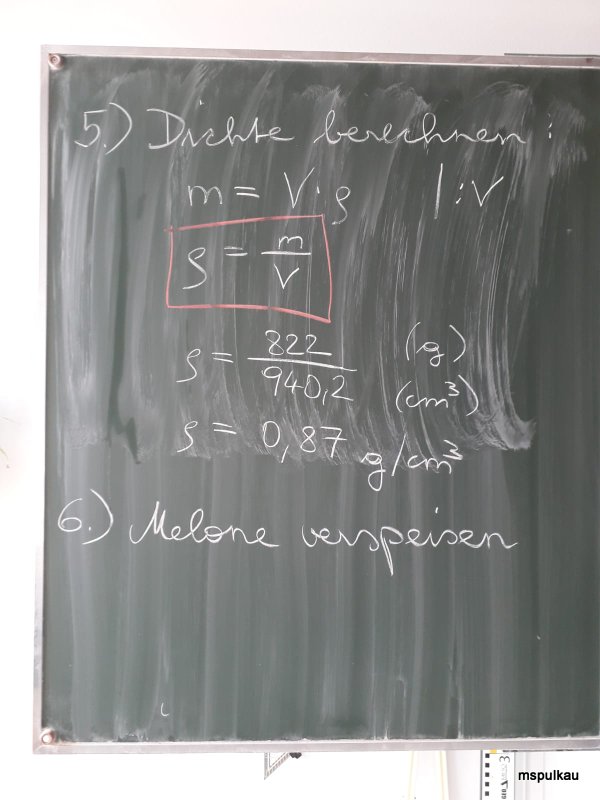 5.) Dichte berechnen:
m = V·ρ |:V
ρ = m/V
ρ = 822/940,2 (g) (cm³)
ρ = 0,87 g/cm³
6.) Melone verspeisen
mspulkau